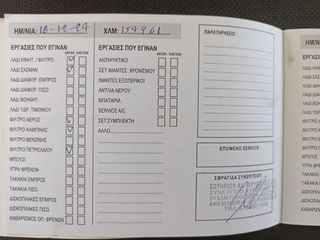 ΗΜ/ΝΙΑ: 18-12-24 ΧΛΜ: 154961
ΠΑΡΑΤΗΡΗΣΕΙΣ:
ΕΡΓΑΣΙΕΣ ΠΟΥ ΕΓΙΝΑΝ
ΕΡΓΑΣΙΕΣ ΠΟΥ ΕΓΙΝΑΝ
ΛΑΔΙ ΚΙΝΗΤ. / ΦΙΛΤΡΟ
ΛΑΔΙ ΣΑΣΜΑΝ
ΛΑΔΙ ΔΙΑΦΟΡ. ΕΜΠΡΟΣ
ΛΑΔΙ ΔΙΑΦΟΡ. ΠΙΣΩ
ΛΑΔΙ ΒΟΗΘΗΤ.
ΛΑΔΙ ΥΔΡ. ΤΙΜΟΝΙΟΥ
ΦΙΛΤΡΟ ΑΕΡΟΣ
ΦΙΛΤΡΟ ΚΑΜΠΙΝΑΣ
ΦΙΛΤΡΟ ΒΕΝΖΙΝΗΣ
ΦΙΛΤΡΟ ΠΕΤΡΕΛΑΙΟΥ
ΜΠΟΥΖΙ
ΥΓΡΑ ΦΡΕΝΩΝ
ΤΑΚΑΚΙΑ ΕΜΠΡΟΣ
ΤΑΚΑΚΙΑ ΠΙΣΩ
ΔΙΣΚΟΠΛΑΚΕΣ ΕΜΠΡΟΣ
ΔΙΣΚΟΠΛΑΚΕΣ ΠΙΣΩ
ΚΑΘΑΡΙΣΜΟΣ ΟΠ. ΦΡΕΝΩΝ
ΑΝΤΙΨΥΚΤΙΚΟ
ΣΕΤ ΙΜΑΝΤΕΣ ΧΡΟΝΙΣΜΟΥ
ΙΜΑΝΤΕΣ ΕΞΩΤΕΡΙΚΟΙ
ΑΝΤΛΙΑ ΝΕΡΟΥ
ΜΠΑΤΑΡΙΑ
SERVICE A/C
ΣΕΤ ΣΥΜΠΛΕΚΤΗ
ΑΛΛΟ
ΕΠΟΜΕΝΟ SERVICE
ΣΦΡΑΓΙΔΑ ΣΥΝΕΡΓΕΙΟΥ
ΣΩΤΗΡΙΟΥ